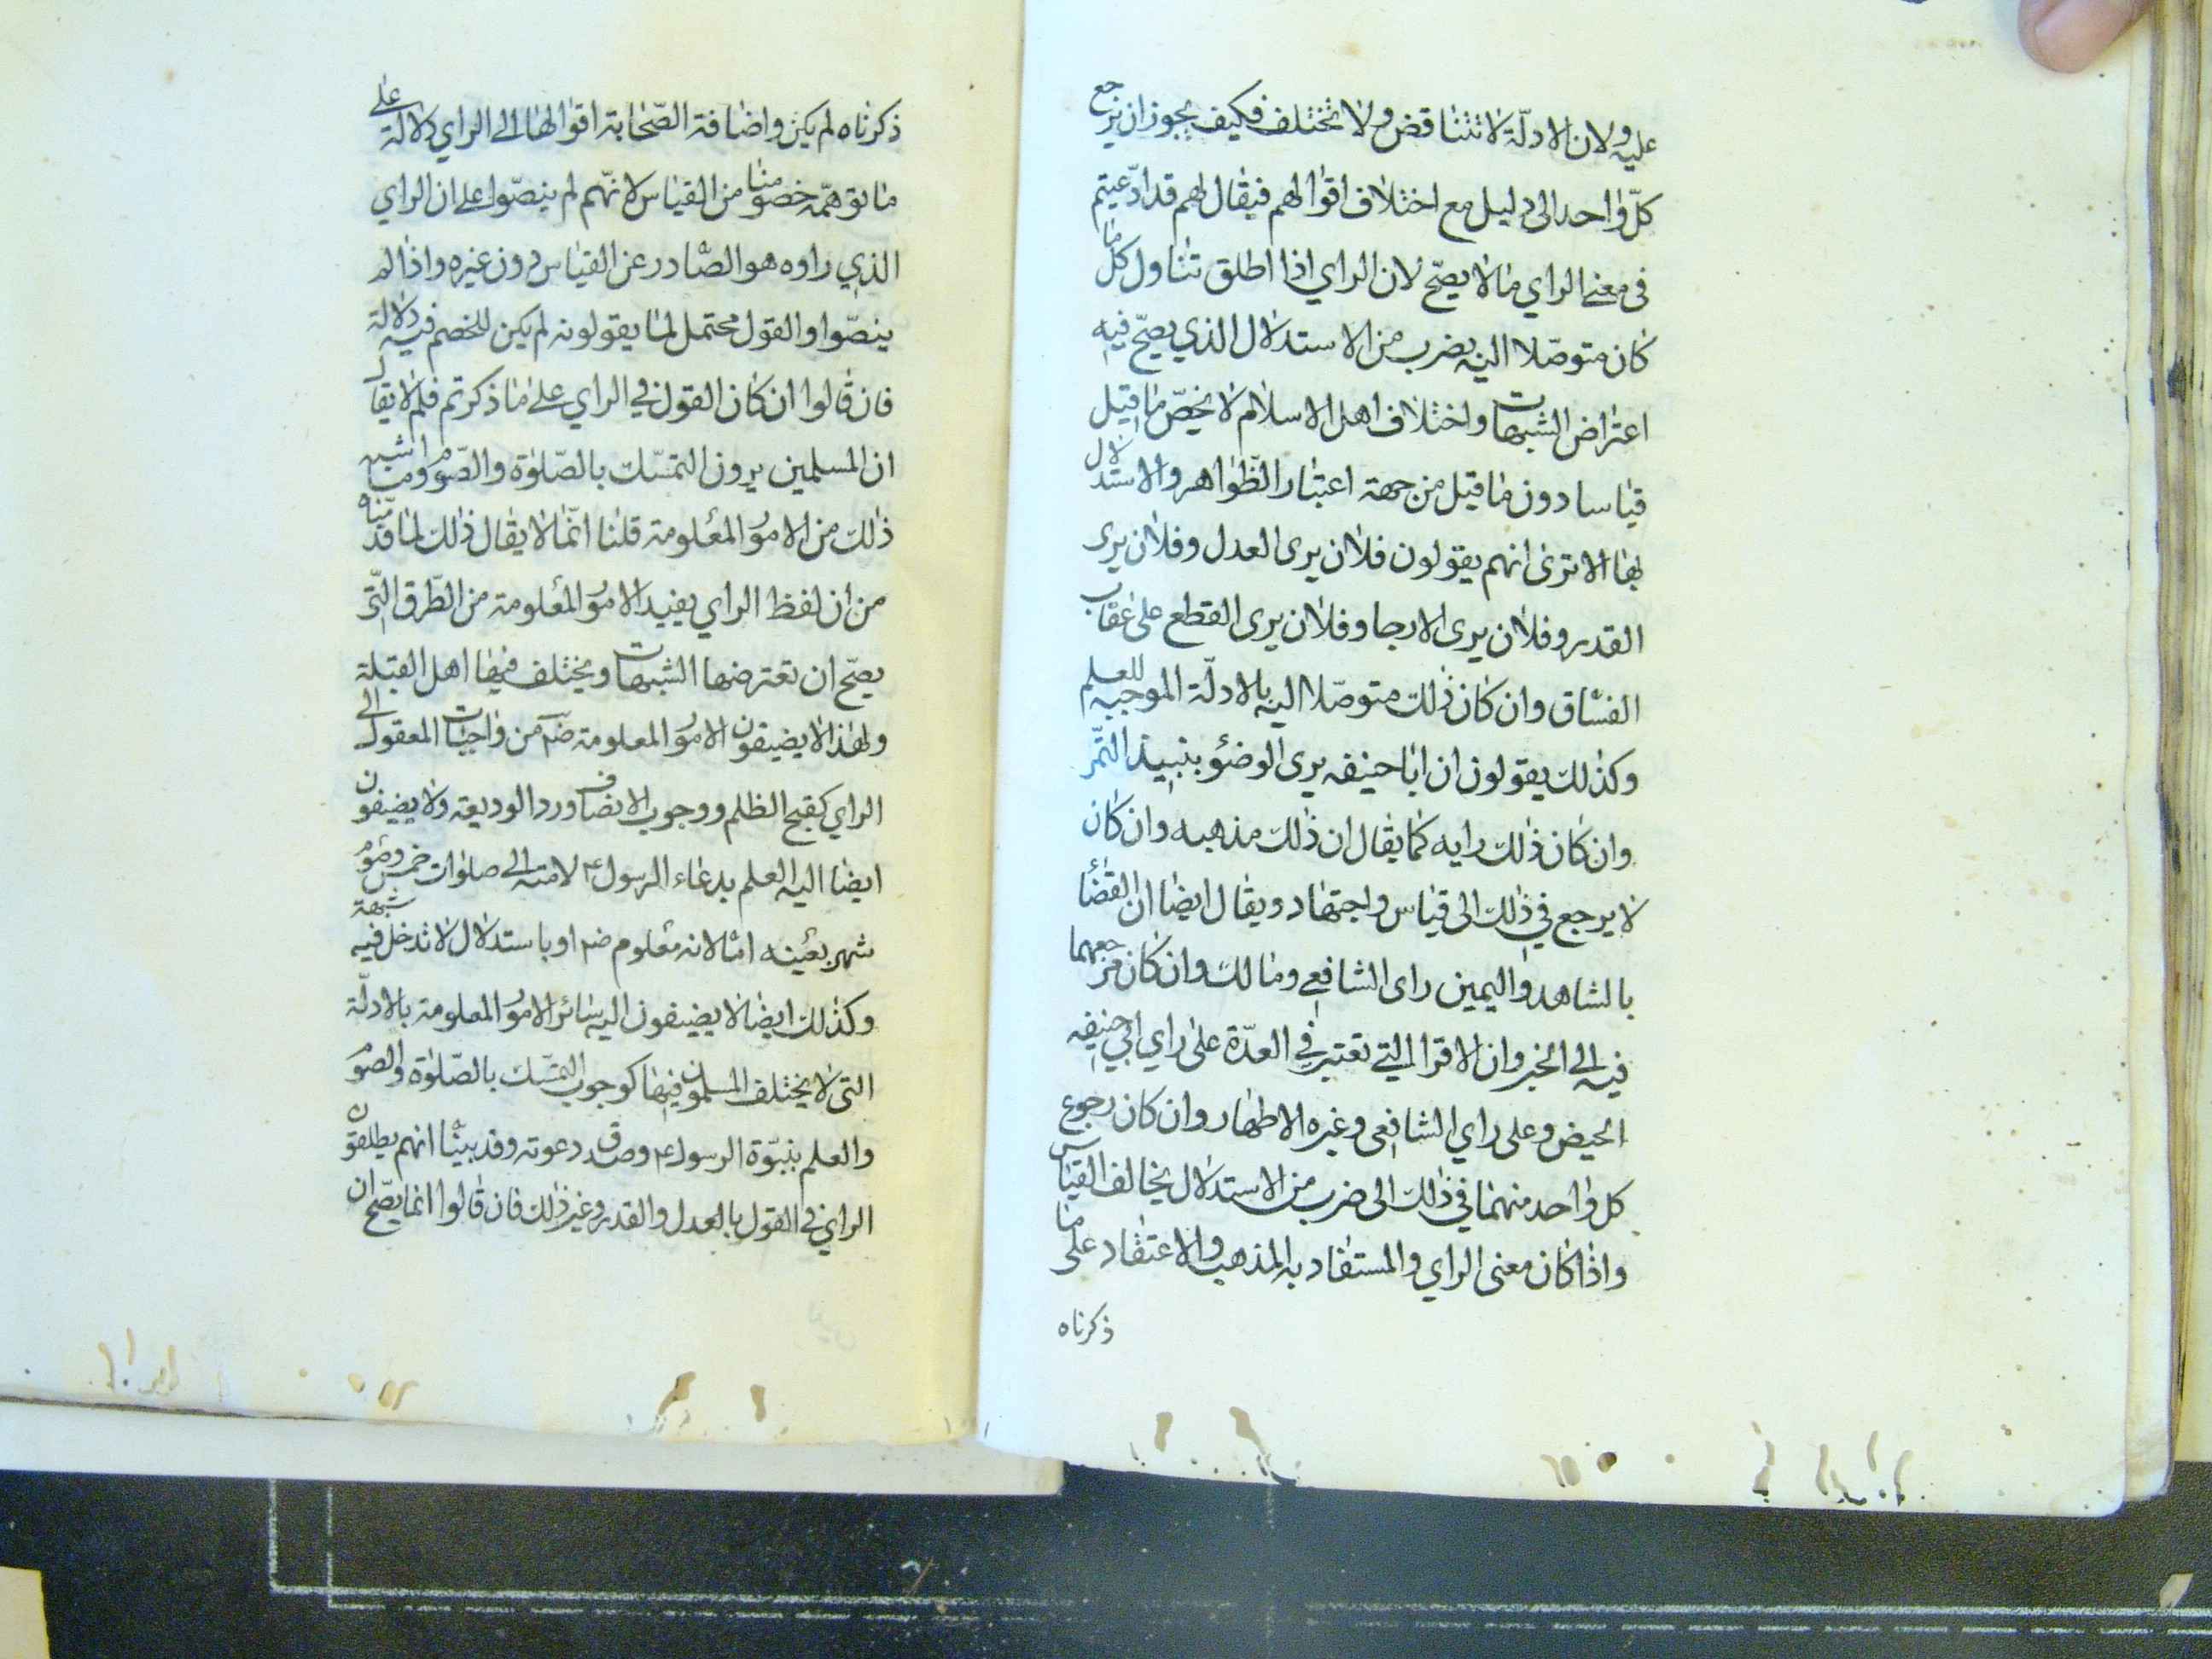 عليه ولان الادلّة لا تتناقض ولا تختلف فكيف يجوز ان يرجع
كلّ واحد الى دليل مع اختلاف اقوالهم فيقال لهم قد ادّعيتم
فى معنى الراي ما لا يصحّ لان الراي اذا اطلق تناول كل ما
كان متوصّلا اليه بضرب من الاستدلال الذي يصحّ فيه
اعتراض الشبهات واختلاف اهل الاسلام لا يخصّ ما قيل
قياسا دون ما قيل من جهة اعتبار الظّواهر والاستدلال
بها الا ترى انهم يقولون فلان يرى العدل وفلان يرى
القدر وفلان يرى الارجا وفلان يرى القطع على عقاب
الفسّاق وان كان ذلك متوصّلا اليه بالادلّة الموجبه للعلم
وكذلك يقولون ان ابا حنيفه يرى الوضؤ بنبيذ التّمر
وان كان ذلك رايه كما يقال ان ذلك مذهبه وان كان
لا يرجع في ذلك الى قياس واجتهاد ويقال ايضا ان القضأ
بالشاهد واليمين راى الشافعي ومالك وان كان مرجعهما
فيه الى الخبر وان الاقرا التي تعتبر في العدّة على راي ابي حنيفه
الحيض وعلى راي الشافعى وغيره الاطهار وان كان رجوع
كل واحد منهما في ذلك الى ضرب من الاستدلال يخالف القياس
واذا كان معنى الراي والمستفاد به المذهب والاعتقاد على ما
ذكرناه
ذكرناه لم يكن واضافة الصّحابة اقوالها الى الراي دلالة على
ما توهمّه خصومنا من القياس لانّهم لم ينصّوا على ان الراي
الذي راوه هو الصّادر عن القياس دون غيره واذا لم
ينصّوا والقول محتمل لما يقولونه لم يكن للخصم فيه دلالة
فان قالوا ان كان القول في الراي على ما ذكرتم فلم لا يقال
ان المسلمين يرون التمسّك بالصّلوة والصّوم وما اشبه
ذلك من الامور المعلومة قلنا انّما لا يقال ذلك لما قدّمناه
من ان لفظ الراي يفيد الامور المعلومة من الطّرق الّتى
يصحّ ان تعترضها الشبهات ويختلف فيها اهل القبلة
ولهذا لا يضيفون الامور المعلومة ضم من واجبات المعقول الى
الراي كقبح الظلم ووجوب الانصاف ورد الوديعة ولا يضيفون
ايضا اليه العلم بدعاء الرسول ؑ لامته الى صلوات خمس وصوم
شهر بعينه امّا لانه معلوم ضم او باستدلال لا تدخل فيه شبهة
وكذلك ايضا لا يضيفون اليه سائر الامور المعلومة بالادلّة
التى لا يختلف المسلمون فيها كوجوب التمسّك بالصّلوة والصّوم
والعلم بنبوّة الرسول ؑ وصدق دعوته وقد بيّنا انهم يطلقون
الراي في القول بالعدل والقدر وغير ذلك فان قالوا انما يصّح ان